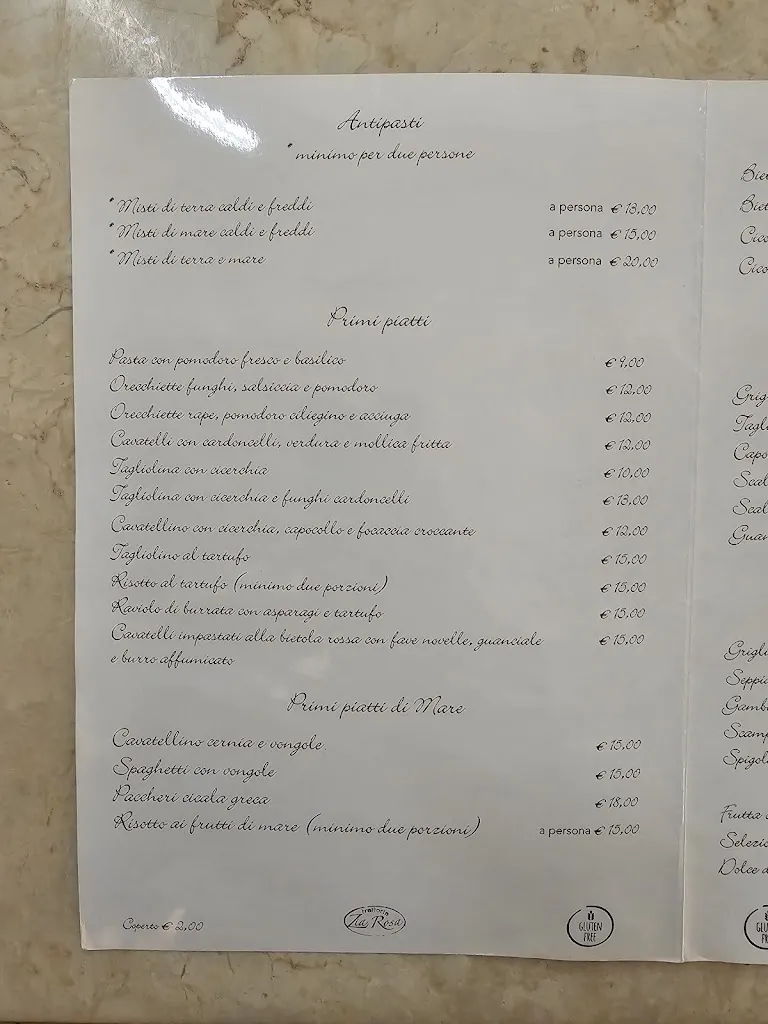 Antipasti
*minimo per due persone
*Misti di terra caldi e freddi a persona € 13,00
*Misti di mare caldi e freddi a persona € 15,00
*Misti di terra e mare a persona € 20,00
Primi piatti
Pasta con pomodoro fresco e basilico € 9,00
Orecchiette funghi, salsiccia e pomodoro € 12,00
Orecchiette rape, pomodoro ciliegino e acciuga € 12,00
Cavatelli con cardoncelli, verdura e mollica fritta € 12,00
Tagliolina con cicerchia € 10,00
Tagliolina con cicerchia e funghi cardoncelli € 13,00
Cavatellino con cicerchia, capocollo e focaccia croccante € 12,00
Tagliolino al tartufo € 15,00
Risotto al tartufo (minimo due porzioni) € 15,00
Raviolo di burrata con asparagi e tartufo € 15,00
Cavatelli impastati alla bietola rossa con fave novelle, guanciale € 15,00
e burro affumicato
Primi piatti di Mare
Cavatellino cernia e vongole € 15,00
Spaghetti con vongole € 15,00
Paccheri cicala greca € 18,00
Risotto ai frutti di mare (minimo due porzioni) a persona € 15,00
Coperto € 2,00
trattoria
Zia Rosa
GLUTEN
FREE